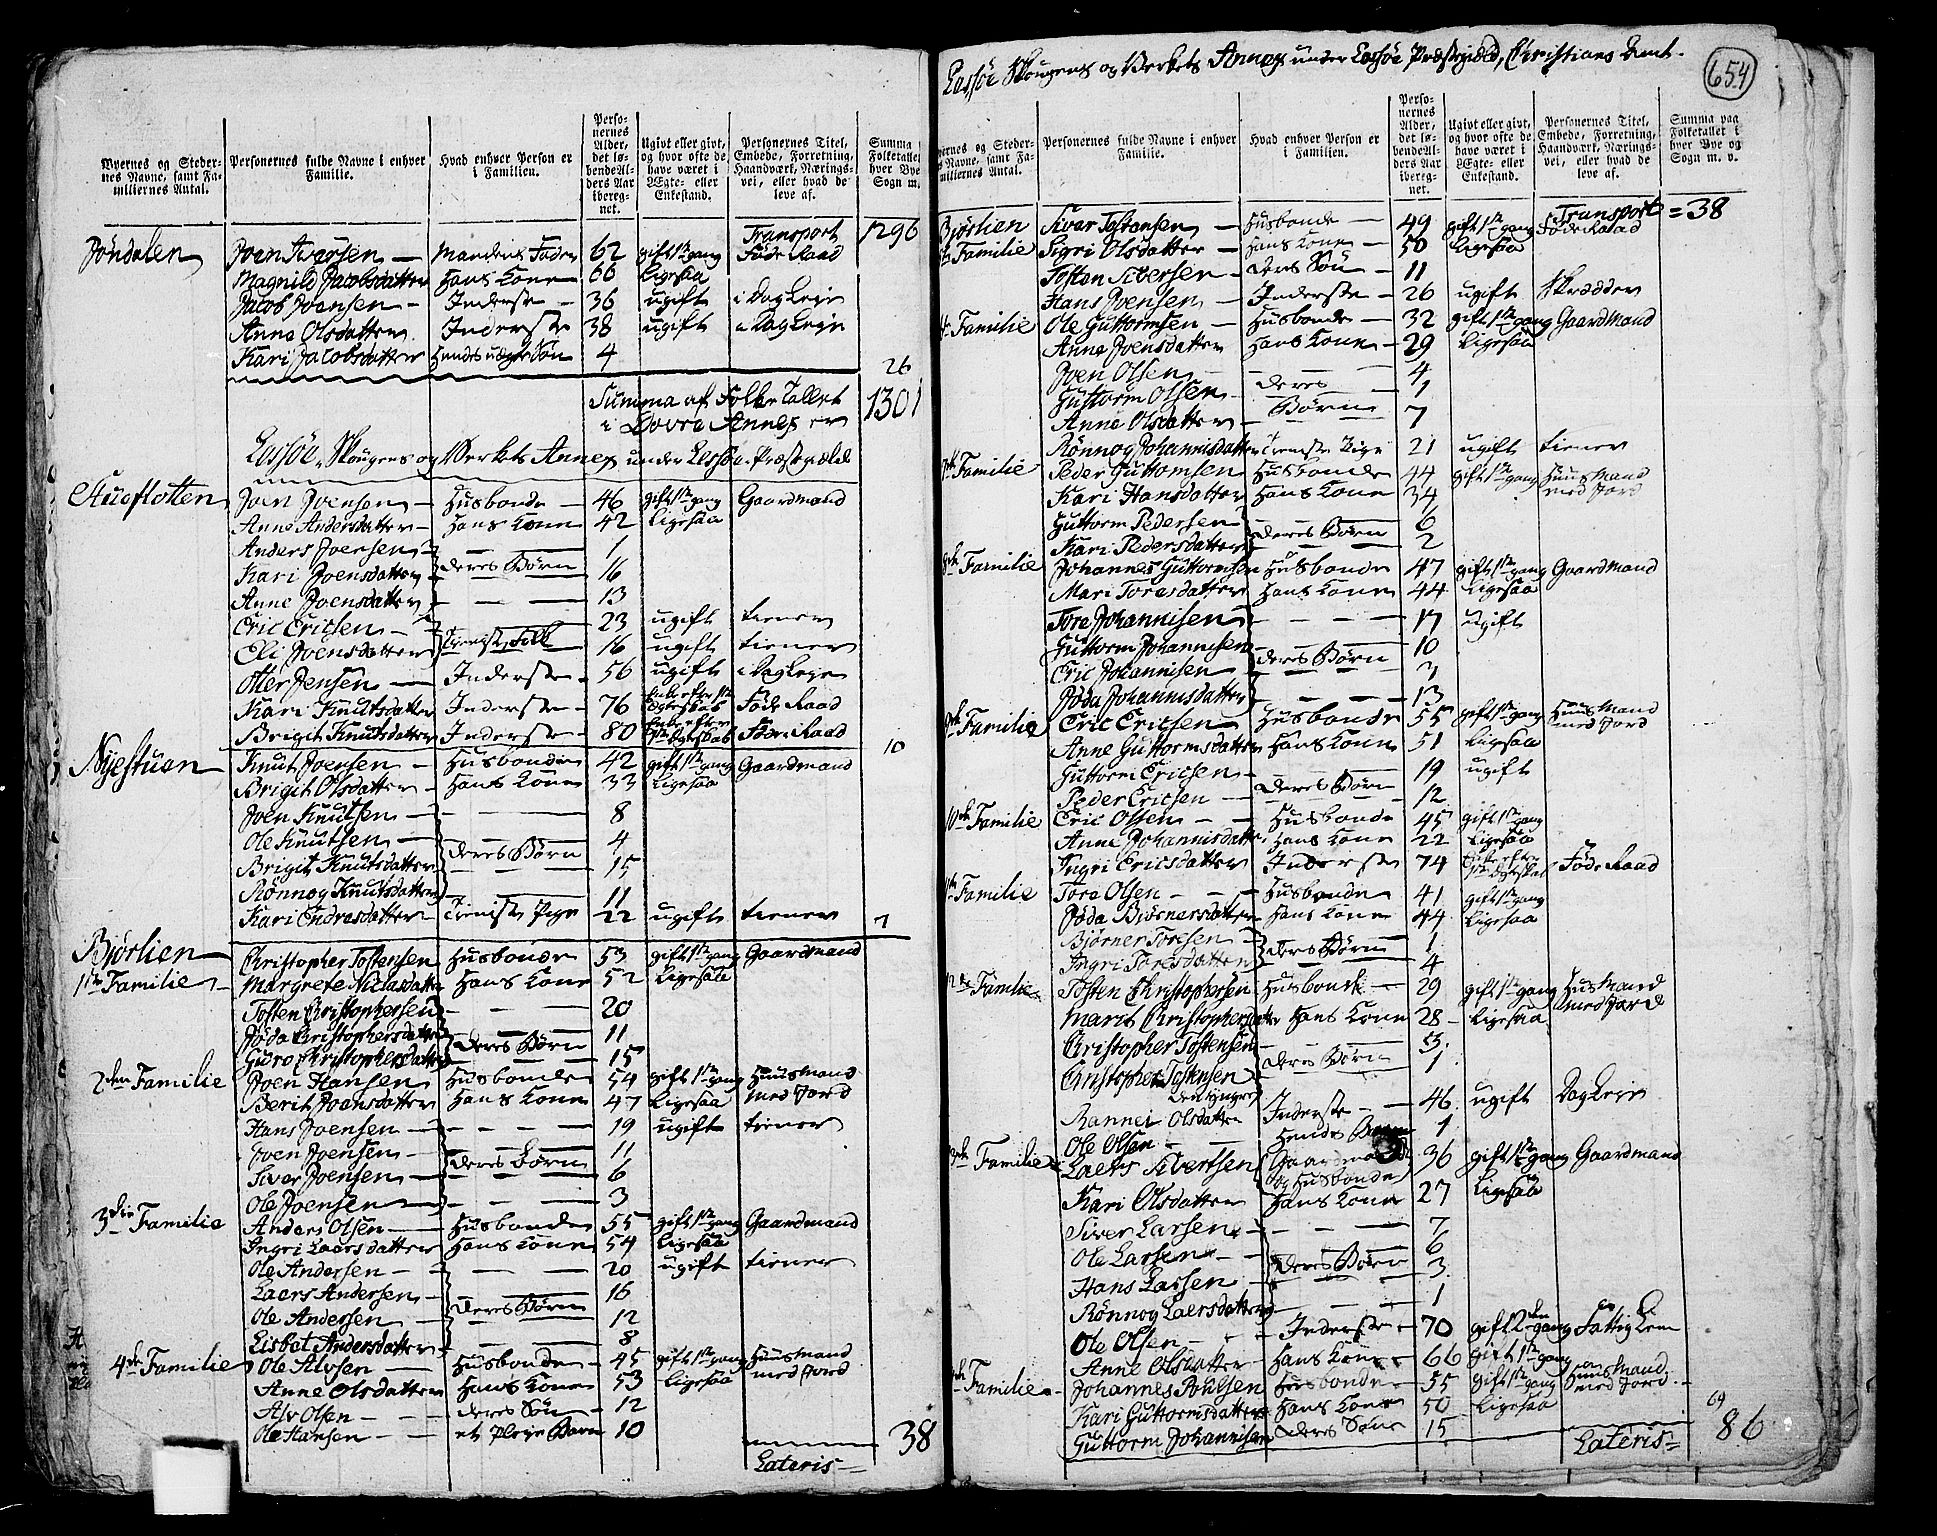 Byernes og Steder-
nes Navne, samt Fa-
miliernes Antal.
Personernes fulde Navne i enhver
Familie.
Hvad enhver Person er
i Familien.
Perso-
nernes
Alder,
det lø-
bende Al-
ders Aar
iberegnet.
Ugivt eller givt,
og hvor ofte de
have været i
Ægte- eller
Enkestand.
Personernes Titel,
Embede, Forretning,
Haandværk, Nærings-
vei, eller hvad de
leve af.
Summa
Folketallet
hver Bye
Sogn m.
Transport 1296
Jöndalen Joen Iversen Mandens Fader 62 gift 1te gang Föde Raad
Magnild Jacobsdatter Hans Kone 66 Ligesaa
Jacob Joensen Inderste 36 ugift i Dag Leje
Anne Olsdatter Inderste 38 ugift i Dag Leje
Kari Jacobsdatter Hendes uægte 4
26
Summa af Folke Tallet
i Dovre Annex er 1301
Lessöe Skougens og Verkets Annex under Lessöe Præstegield
Joen Joensen Husbonde 46 gift 1te gang Gaardmand
Anne Andersdatter Hans Kone 42 Ligesaa
Anders Joensen 1
Kari Joensdatter deres Börn 16
Anne Joensdatter 13
Eric Ericsen 23 ugift tiener
Eli Joensdatter Tieniste Folk 16 ugift tiener
Otter Jensen Inderste 56 ugift i Dag Leje
Kari Knutsdatter Inderste 76 Enke efter 1te Ægteskab Föde Raad
Brigit Knutsdatter Inderste 80 Enke efter 1te Ægteskab Föde Raad
10
Nyestuen Knut Joensen Husbonde 42 gift 1te gang Gaardmand
Brigit Olsdatter Hans Kone 33 Ligesaa
Joen Knutsen 8
Ole Knutsen 4
Brigit Knutsdatter deres Börn 15
Rönnog Knutsdatter 11
Kari Endresdatter Tieniste Pige 22 ugift tiener 7
Björlien Christopher Tostensen Husbonde 53 gift 1te gang Gaardmand
1te Familie Margrete Niclasdatter Hans Kone 52 Ligesaa
Tosten Christophersen 20
Jöda Christophersdatter 11
Guro Christophersdatter deres Börn 15
2den Familie Joen Hansen Husbonde 54 gift 1te gang Huusmand
Berit Joensdatter Hans Kone 47 Ligesaa med Jord
Hans Joensen 19 ugift tiener
Joen Joensen 11
Siver Joensen deres Börn 6
Ole Joensen 3
3die Familie Anders Olsen Husbonde 55 gift 1te gang Gaardmand
Ingri Laersdatter Hans Kone 54 Ligesaa
Ole Andersen 20 ugift tiener
Laers Andersen 16
Ole Andersen deres Börn 12
Lisbet Andersdatter 8
4de Familie Ole Alvsen Husbonde 45 gift 1te gang Huusmand
Anne Olsdatter Hans Kone 53 Ligesaa med Jord
Alv Olsen deres Sön 12
Ole Hansen et Pleje Barn 10
Lateris 38
Lessöe Skougens og Verkets Annex under Lessöe Præstegield, Christians Amt.
654
ernes og Steder-
s Navne, samt Fa-
miliernes Antal.
Personernes fulde Navne i enhver
Familie.
Hvad enhver Person er
i Familien.
Perso-
nernes
Alder,
det lø-
bende Al-
ders Aar
iberegnet.
Ugivt eller givt,
og hvor ofte de
have været i
Ægte- eller
Enkestand.
Personernes Titel,
Embede, Forretning,
Haandværk, Nærings-
vei, eller hvad de
leve af.
Summa paa
Folketallet i
hver Bye og
Sogn m. v.
Transport = 38
Björlien Siver Tostensen Husbonde 49 gift 1te gang Föde Raad
Familie Sigri Olsdatter Hans Kone 50 Ligesaa
Tosten Siversen deres Sön 11
Hans Joensen Inderste 26 ugift Skrædder
Familie Ole Guttormsen Husbonde 32 gift 1te gang Gaardmand
Anne Joensdatter Hans Kone 29 Ligesaa
Joen Olsen 4
Guttorm Olsen deres 1
Anne Olsdatter Börn 7
Rönnog Johannisdatter Tieniste Pige 21 ugift tiener
7de Familie Peder Guttomsen Husbonde 44 gift 1te gang Huusmand
Kari Hansdatter Hans Kone 34 med Jord
Guttorm Pedersen 6
Kari Pedersdatter deres Börn 2
Familie Johannes Guttormsen Husbonde 47 gift 1te gang Gaardmand
Mari Toresdatter Hans Kone 44 Ligesaa
Tore Johannisen 17 ugift
Guttorm Johannisen 10
Eric Johannisen deres Börn 7
Jöda Johannisdatter 13
9de Familie Eric Ericsen Husbonde 55 gift 1te gang Huusmand
Anne Guttormsdatter Hans Kone 51 Ligesaa med Jord
Guttorm Ericsen 19 ugift
Peder Ericsen deres Börn 12
10de Familie Eric Olsen Husbonde 45 gift 1te gang
Anne Johannisdatter Hans Kone 22 Ligesaa
Ingri Ericsdatter Inderste 74 Enke efter 1te Ægteskab Föde Raad
Familie Tore Olsen Husbonde 41 gift 1te gang
Jöda Björnersdatter Hans Kone 44 Ligesaa
Björner Toresen 1
Ingri Toresdatter deres Börn 4
12te Familie Tosten Christophersen Husbonde 29 gift 1te gang Huusmand
Marit Christophersdatter Hans Kone 28 Ligesaa med Jord
Christopher Tostensen
Christopher Tostensen deres Börn 1
den yngre
Rannei Olsdatter Inderste 46 ugift Dag Leje
Ole Olsen Hendes Barn 1
Familie Laers Sivertsen Gaardmand og Husbonde 36 gift 1te gang Gaardmand
Kari Olsdatter Hans Kone 27 Ligesaa
Siver Larsen 7
Ole Larsen 6
Hans Larsen deres Börn 3
Rönnog Laersdatter 1
Ole Olsen Inderste 70 gift 2den gang Fattig Lem
Anne Olsdatter Hans Kone 66 gift 1te gang
Familie Johannes Poulsen Husbonde 55 gift 1te gang Huusmand
Kari Guttormsdatter Hans Kone 50 Ligesaa med Jord
Guttorm Johannisen deres Sön 15
69
Lateris 86